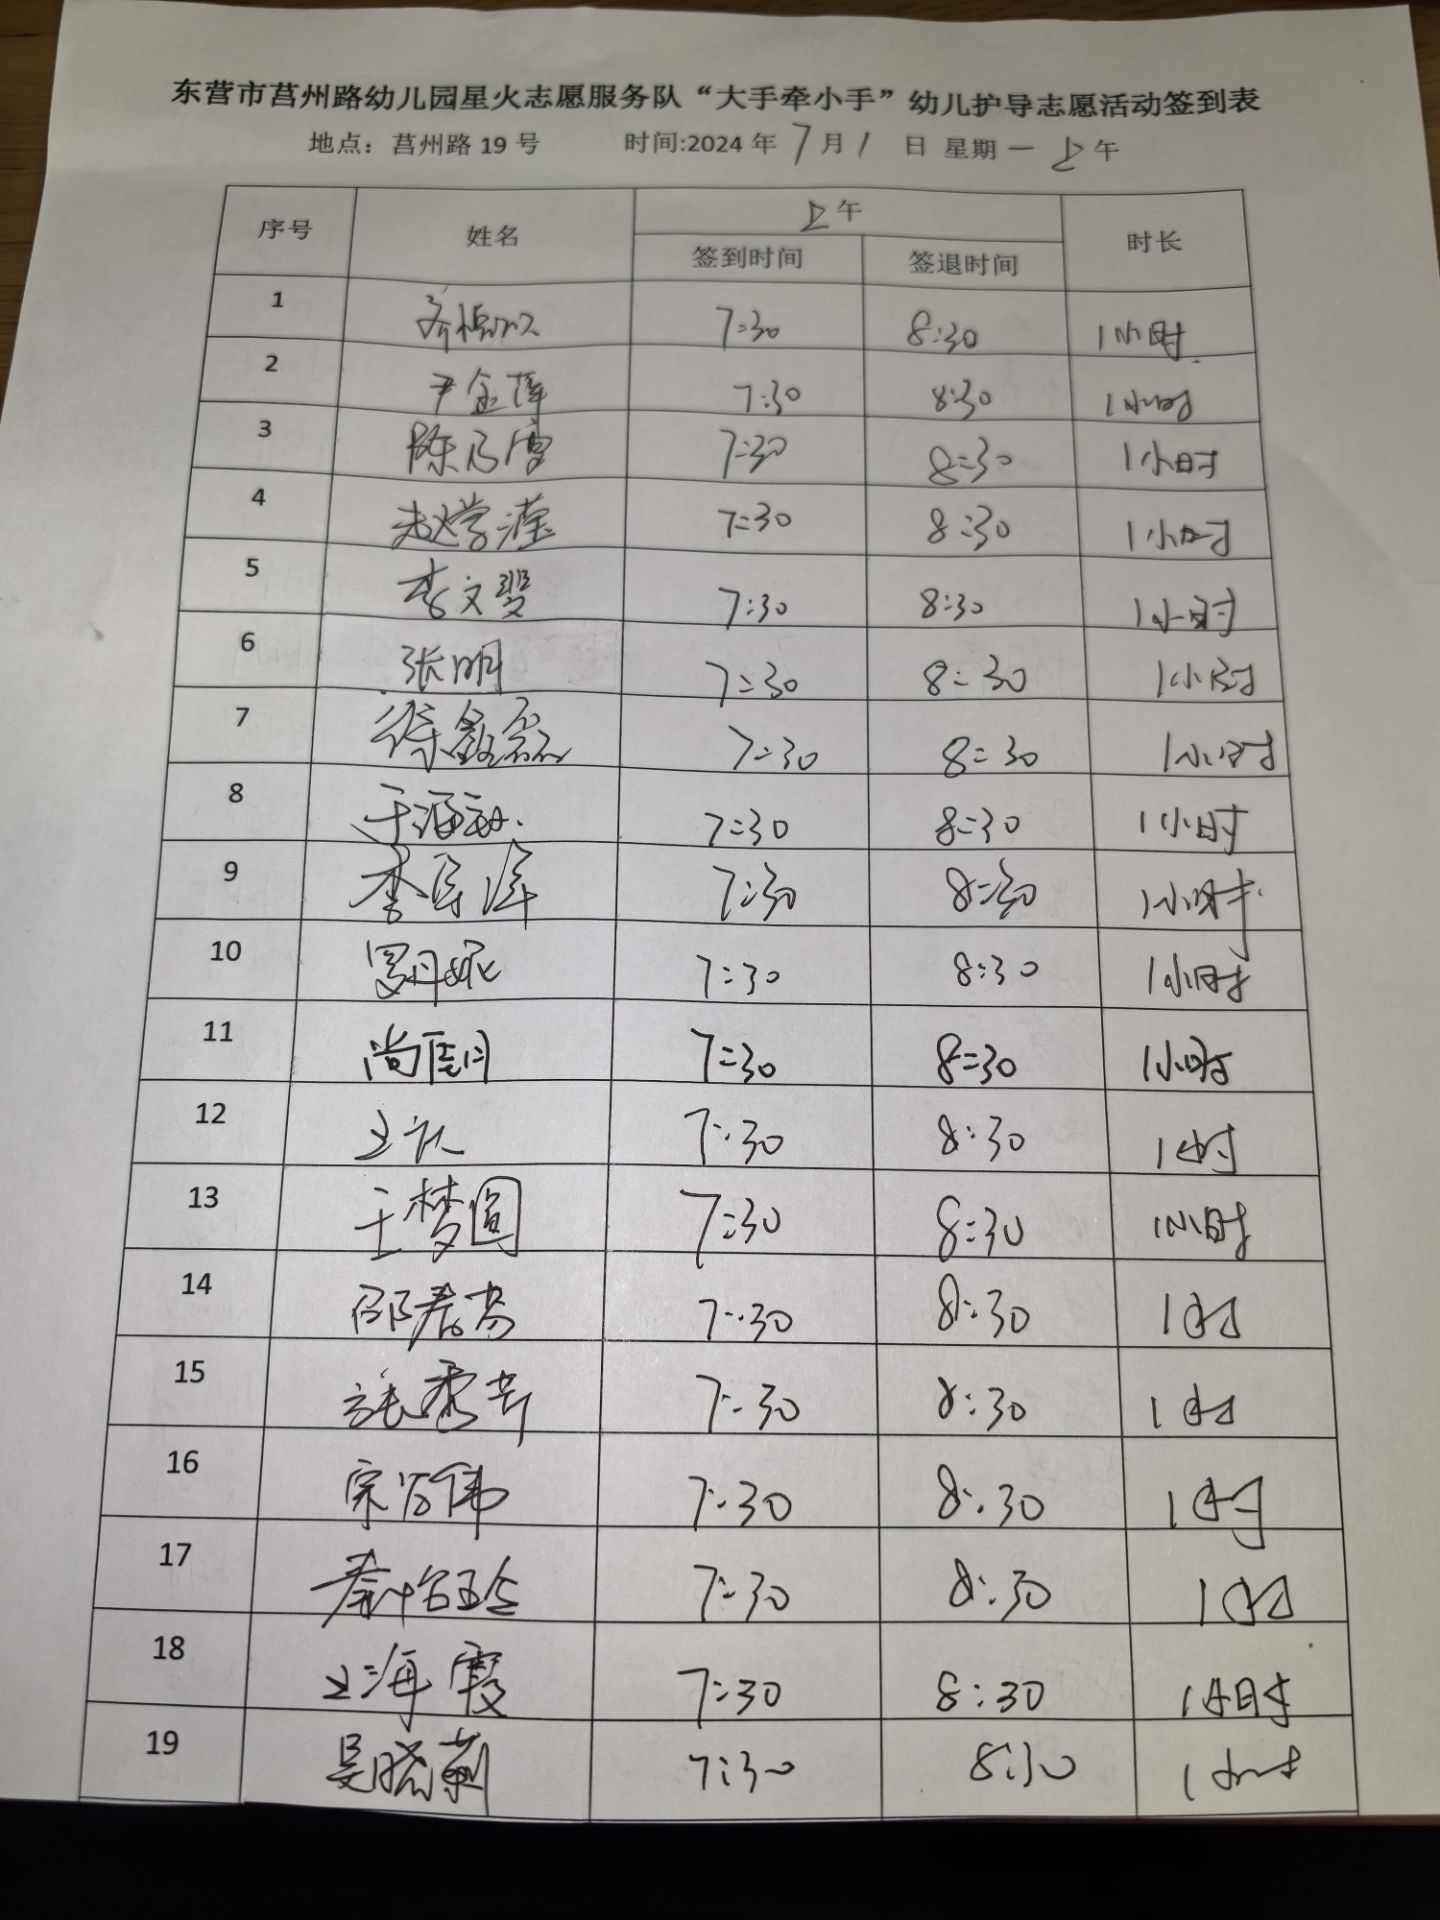 东营市莒州路幼儿园星火志愿服务队“大手牵小手”幼儿护导志愿活动签到表
地点：莒州路 19 号 时间:2024 年 7 月 1 日 星期 一 上午
序号 姓名 上午 时长
签到时间 签退时间
1 7:30 8:30 1小时
2 尹金萍 7:30 8:30 1小时
3 陈乃雪 7:30 8:30 1小时
4 赵学滢 7:30 8:30 1小时
5 李文翌 7:30 8:30 1小时
6 张明 7:30 8:30 1小时
7 徐鑫磊 7:30 8:30 1小时
8 于海勃 7:30 8:30 1小时
9 李 7:30 8:30 1小时
10 罗丹妮 7:30 8:30 1小时
11 尚佳月 7:30 8:30 1小时
12 王 7:30 8:30 1小时
13 王梦圆 7:30 8:30 1小时
14 邵 7:30 8:30 1小时
15 7:30 8:30 1小时
16 宗 伟 7:30 8:30 1小时
17 7:30 8:30 1小时
18 王海霞 7:30 8:30 1小时
19 吴晓莉 7:30 8:30 1小时